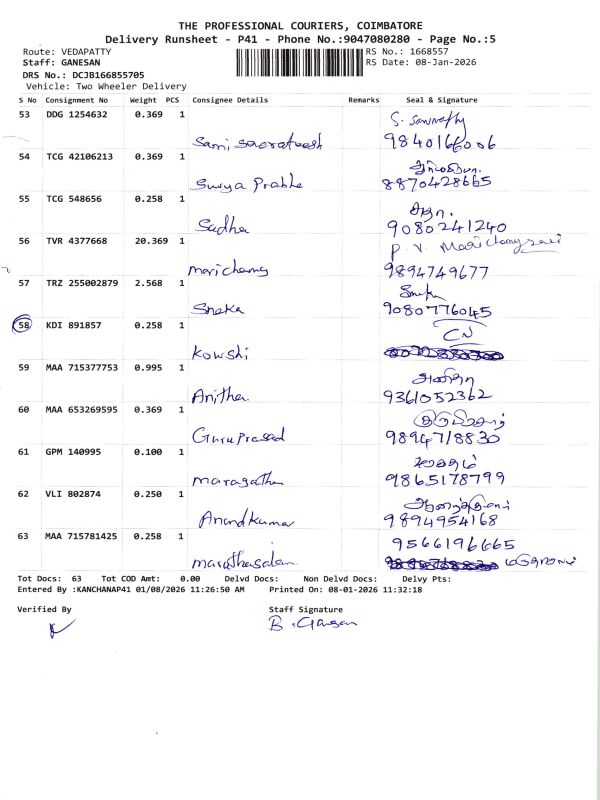 THE PROFESSIONAL COURIERS, COIMBATORE
Delivery Runsheet - P41 - Phone No.:9047080280 - Page No.:5
Route: VEDAPATTY RS No.: 1668557
Staff: GANESAN RS Date: 08-Jan-2026
DRS No.: DCJB166855705
Vehicle: Two Wheeler Delivery
S No Consignment No Weight PCS Consignee Details Remarks Seal & Signature
53 DDG 1254632 0.369 1
Sami Sacrateesh 9840166006
54 TCG 42106213 0.369 1
Surya Prabha 8870428665
55 TCG 548656 0.258 1 சுதா.
Sudha 9080241240
56 TVR 4377668 20.369 1 P. V. Marichamy
Marichamy 9894749677
57 TRZ 255002879 2.568 1 Sneka
Sneka 9080776045
58 KDI 891857 0.258 1 CN
Kowshi
59 MAA 715377753 0.995 1 அனிதா
Anitha 9361052362
60 MAA 653269595 0.369 1
Guru Prasad 9894718830
61 GPM 140995 0.100 1 மரகதம்
Maragatham 9865178799
62 VLI 802874 0.250 1
Anandkumar 9894954168
63 MAA 715781425 0.258 1 9566196665
Marathasalam
Tot Docs: 63 Tot COD Amt: 0.00 Delvd Docs: Non Delvd Docs: Delvy Pts:
Entered By :KANCHANAP41 01/08/2026 11:26:50 AM Printed On: 08-01-2026 11:32:18
Verified By Staff Signature
B. Ganesan